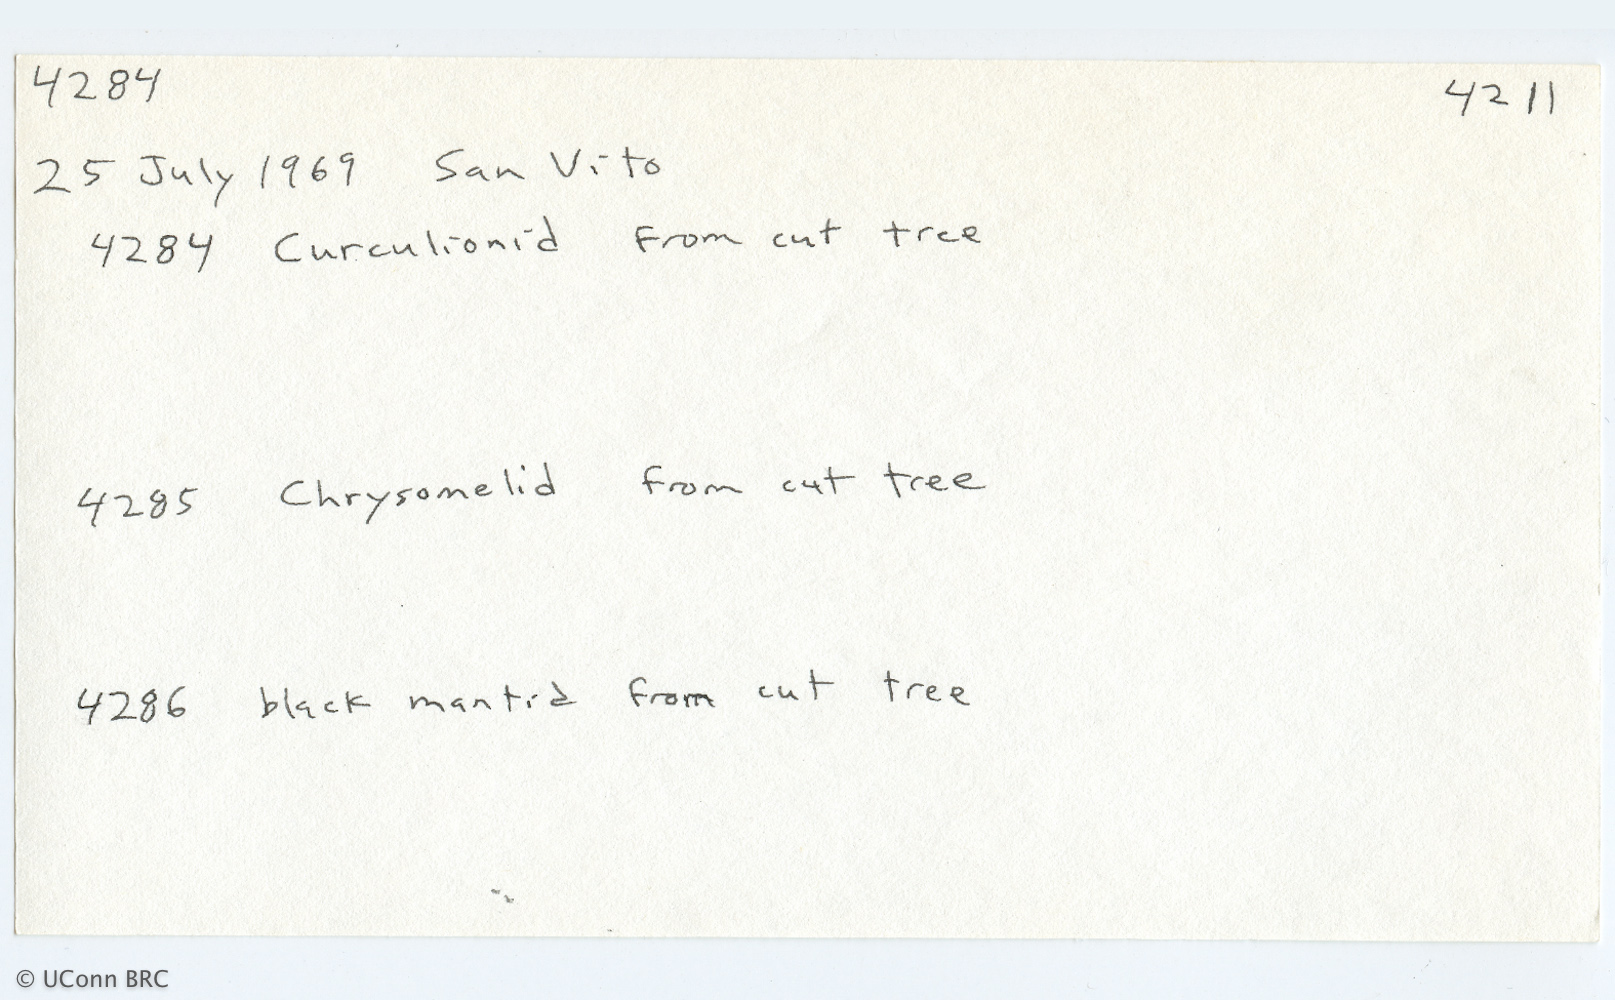 4284 4211
25 July 1969 San Vito
4284 Curculionid From cut tree
4285 Chrysomelid from cut tree
4286 black mantid from cut tree
© UConn BRC